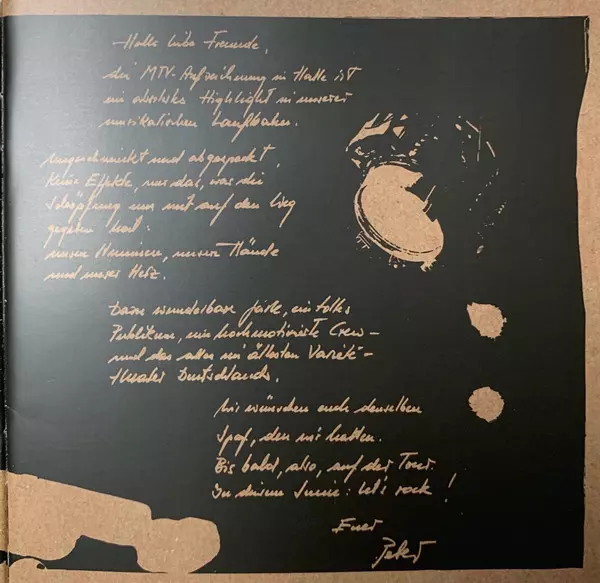 Hallo liebe Freunde,
die MTV-Aufzeichnung in Halle ist
ein absolutes Highlight in unserer
musikalischen Laufbahn.
Ungeschminkt und abgespeckt,
keine Effekte, nur das, was die
Schöpfung uns mit auf den Weg
gegeben hat:
unsere Stimmen, unsere Hände
und unser Herz.
Dazu wunderbare Gäste, ein tolles
Publikum, eine hochmotivierte Crew -
und das alles im ältesten Varieté-
theater Deutschlands.
Wir wünschen euch denselben
Spaß, den wir hatten.
Bis bald, also, auf der Tour.
In diesem Sinne: let's rock!
Euer
Peter